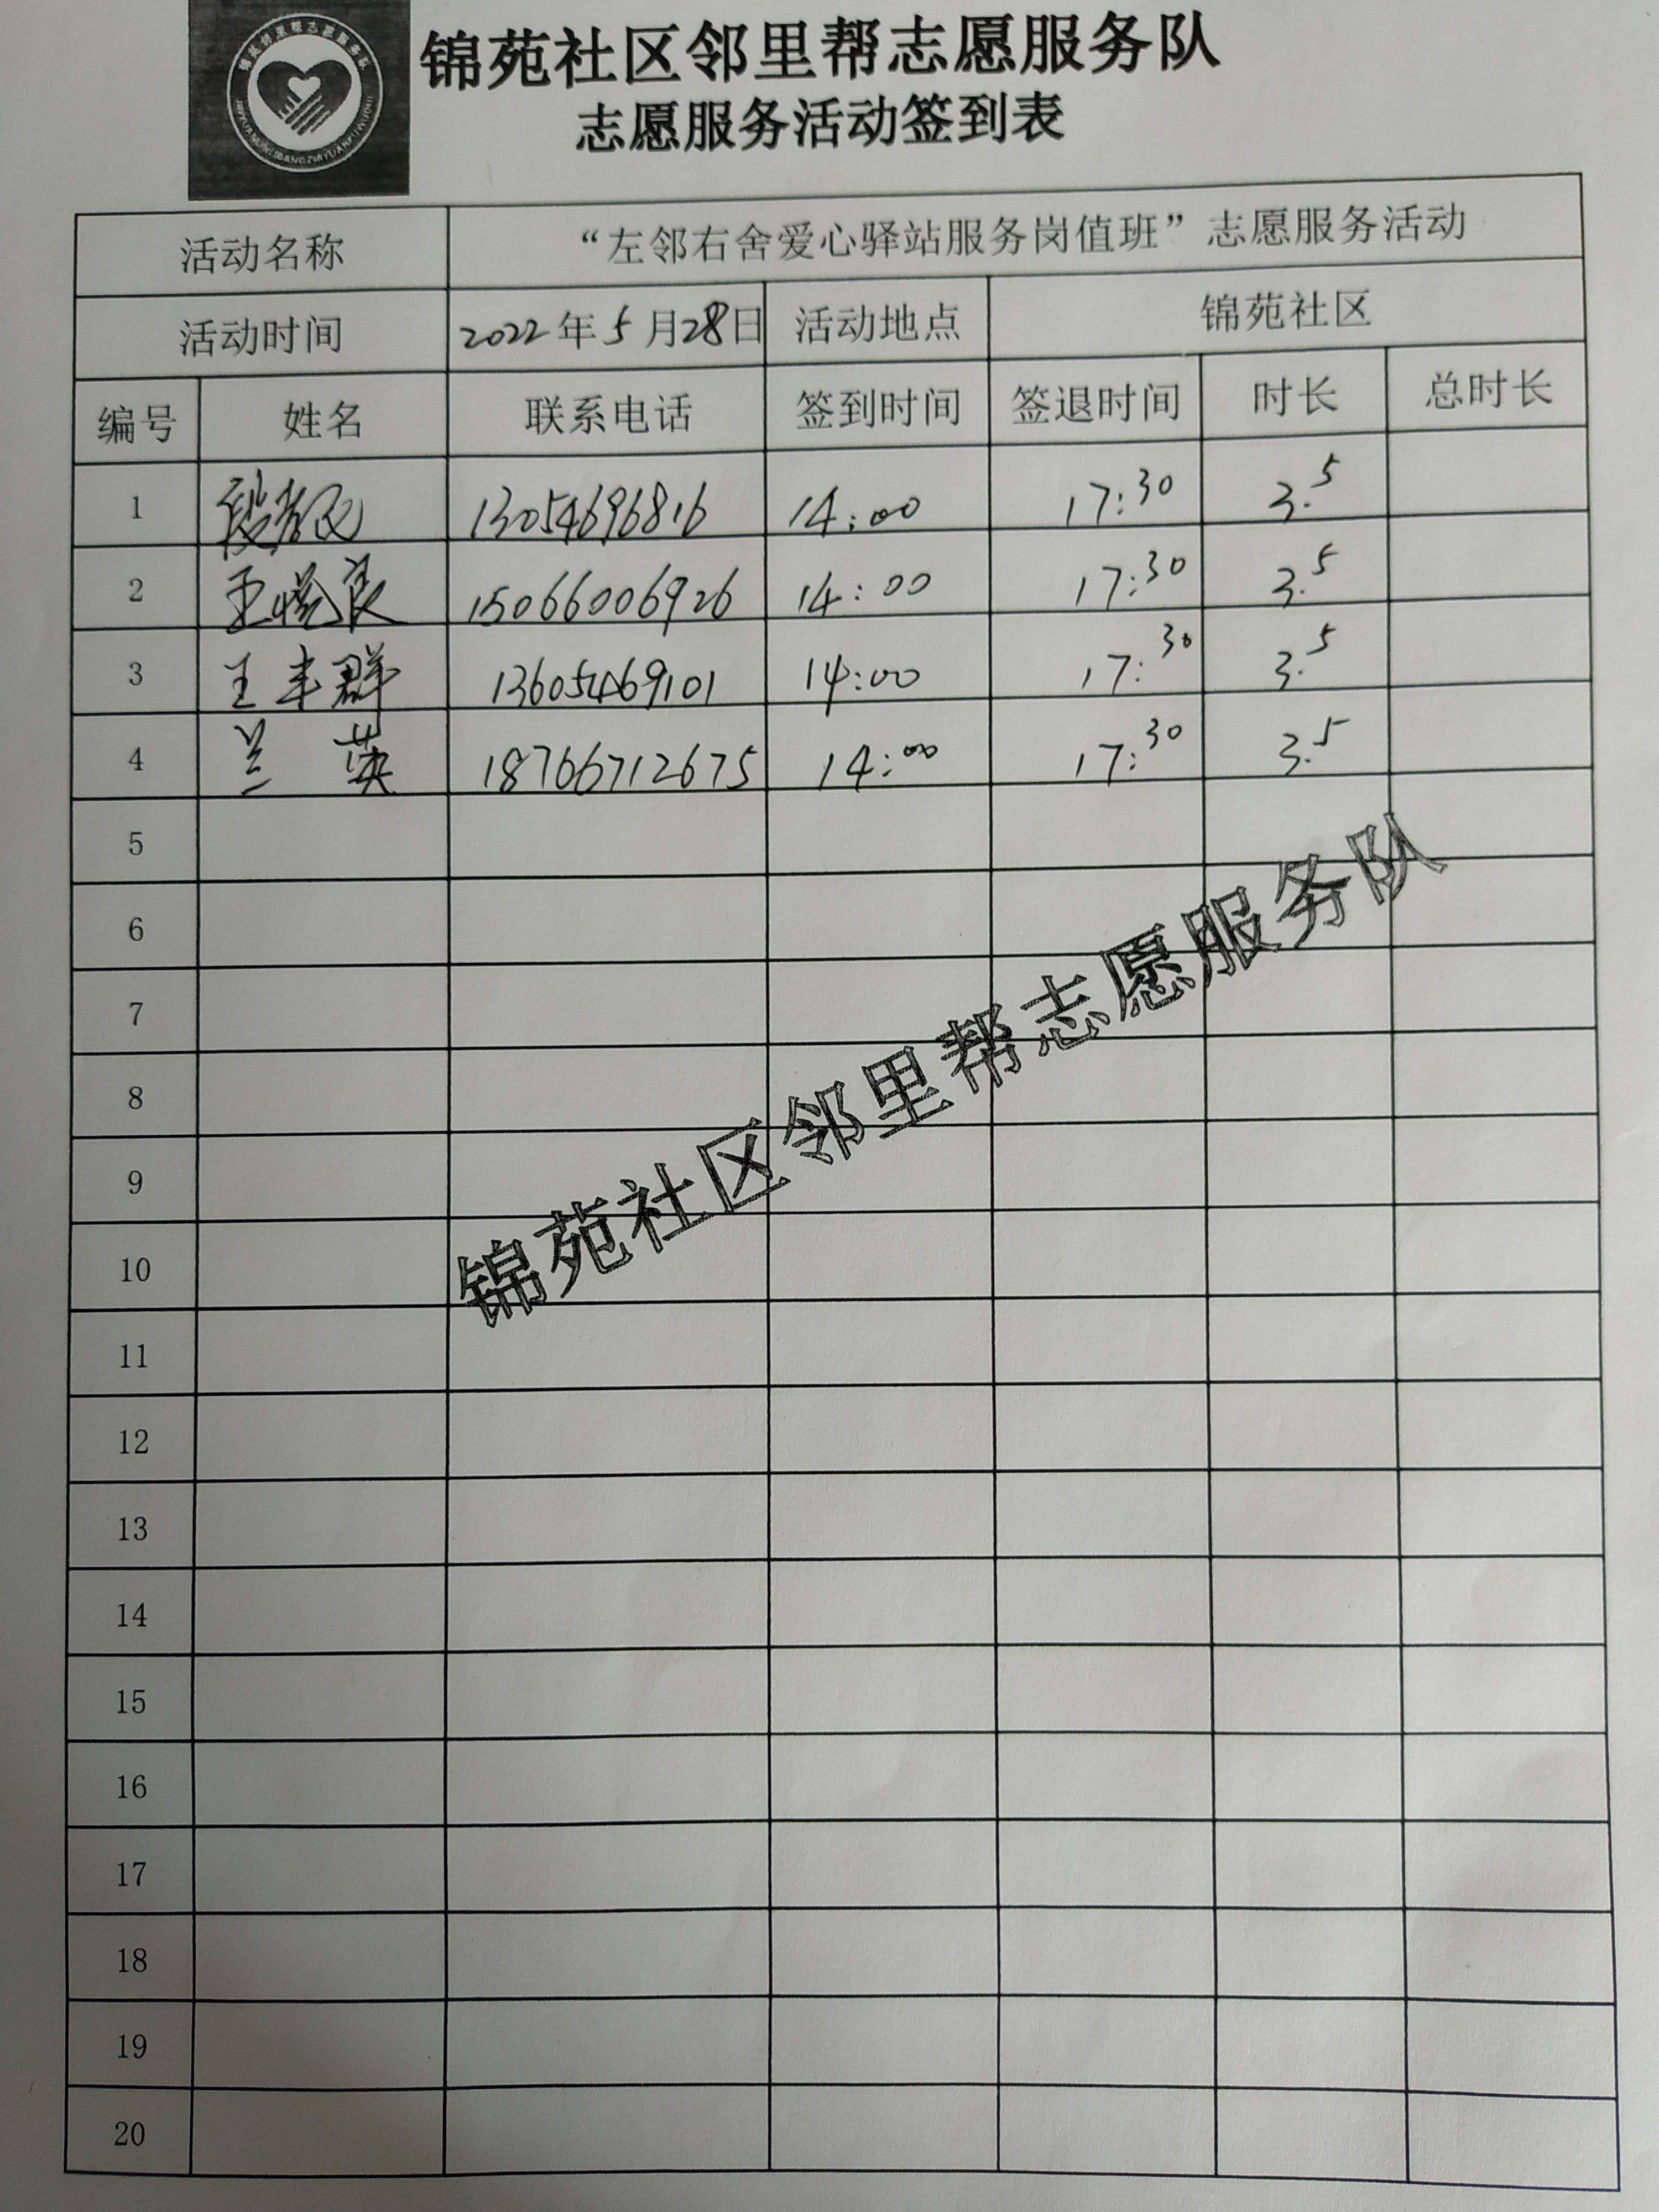 锦苑社区邻里帮志愿服务队
志愿服务活动签到表
活动名称 “左邻右舍爱心驿站服务岗值班”志愿服务活动
活动时间 2022年5月28日 活动地点 锦苑社区
编号 姓名 联系电话 签到时间 签退时间 时长 总时长
1 13054696816 14:00 17:30 3.5
2 15066006926 14:00 17:30 3.5
3 王丰群 13605469101 14:00 17:30 3.5
4 兰英 18766712675 14:00 17:30 3.5
5
6
7
8
9
10
11
12
13
14
15
16
17
18
19
20
锦苑社区邻里帮志愿服务队